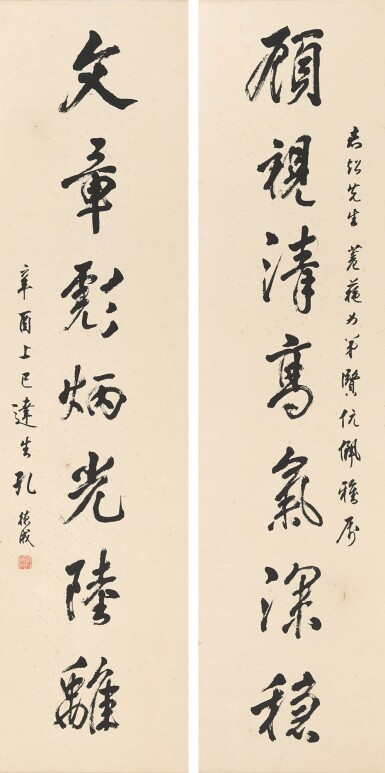 顧視清高氣深穩
志超先生 蕙蓀女弟賢伉儷雅屬
文章彪炳光陸離
辛酉上巳達生孔德成